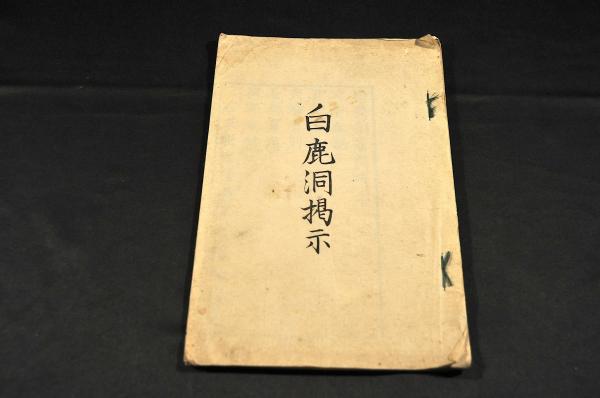 白鹿洞掲示